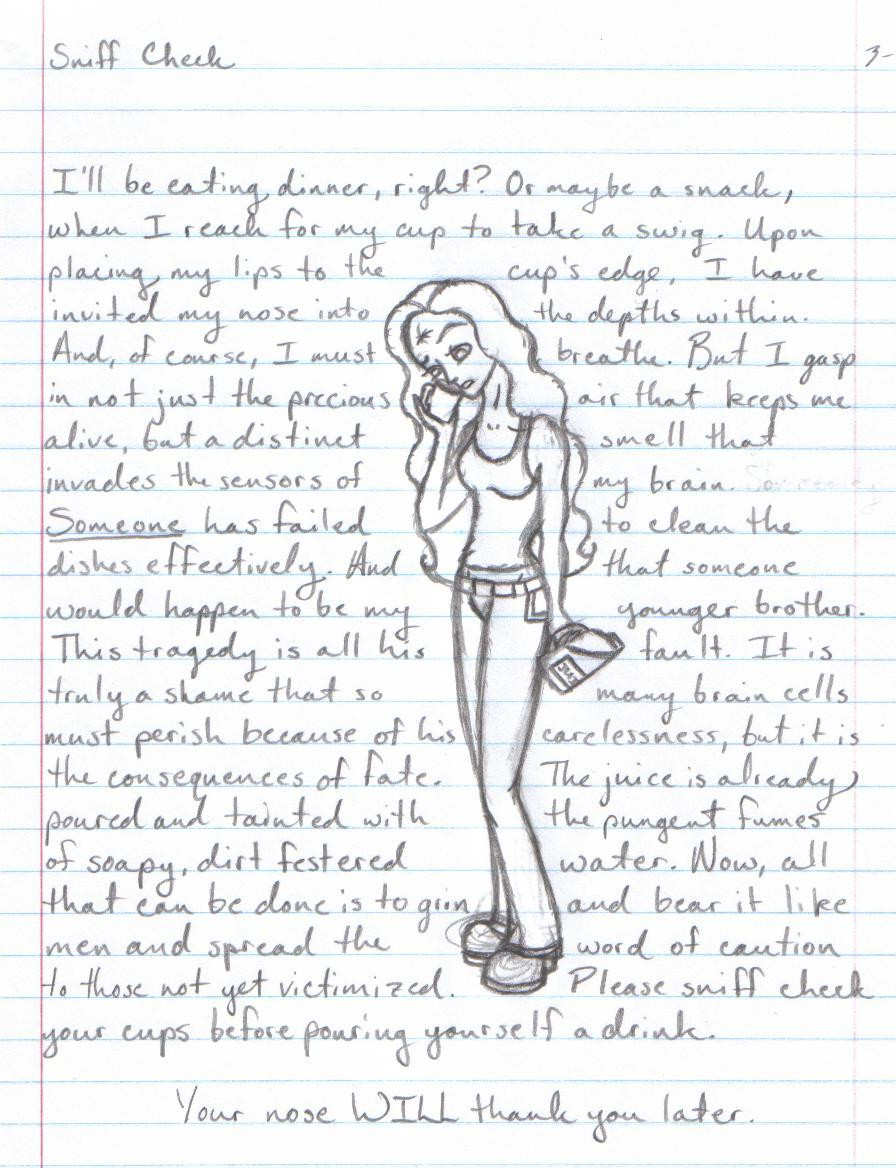 Sniff Check
3-
I'll be eating dinner, right? Or maybe a snack,
when I reach for my cup to take a swig. Upon
placing my lips to the cup's edge, I have
invited my nose into the depths within.
And, of course, I must breathe. But I gasp
in not just the precious air that keeps me
alive, but a distinct smell that
invades the sensors of my brain.
Someone has failed to clean the
dishes effectively. And that someone
would happen to be my younger brother.
This tragedy is all his fault. It is
truly a shame that so many brain cells
must perish because of his carelessness, but it is
the consequences of fate. The juice is already
poured and tainted with the pungent fumes
of soapy, dirt festered water. Now, all
that can be done is to grin and bear it like
men and spread the word of caution
to those not yet victimized. Please sniff check
your cups before pouring yourself a drink.
Your nose WILL thank you later.